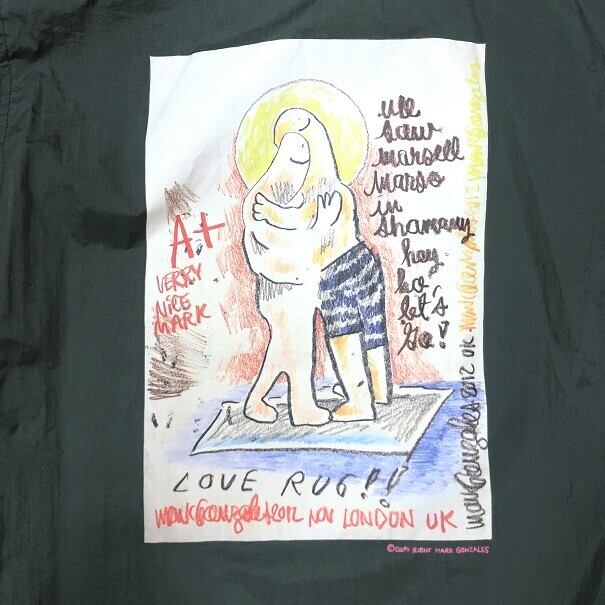 we
saw
marsell
marso
in
shamany
hey
ho
let's
Go!
A+
VERRY
NICE
MARK
LOVE RUG!!
mark Gonzales 2012 NOV LONDON UK
mark Gonzales 2012 UK mark Gonzales 2012 mark Gonzales
© COPY RIGHT MARK GONZALES